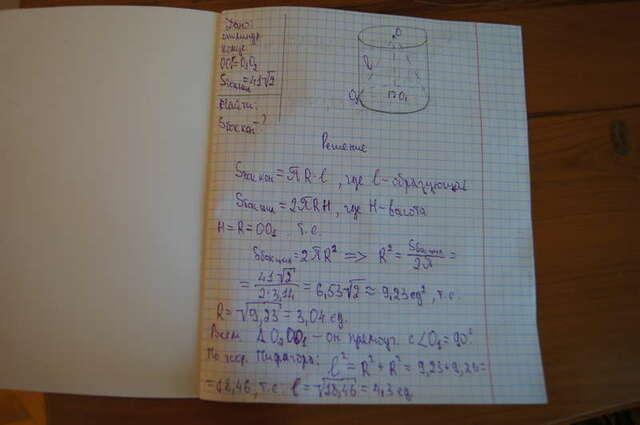 Дано:
цилиндр
конус
OO₁=O₁O₂
Sбок цил=41√2
Найти:
Sбок кон-?
O
O₂
O₁
Решение
Sбок кон=πR·l, где l-образующая
Sбок цил=2πRH, где H-высота
H=R=OO₁ т.е.
Sбок цил=2πR² => R²=Sбок цил/2π=
=41√2/2·3,14=6,53√2≈9,23 ед², т.е.
R=√9,23=3,04 ед.
Δ O₂OO₁-он прямоуг. с ∠O₁=90°
По теор. Пифагора: l²=R²+R²=9,23+9,23=
=18,46, т.е. l=√18,46=4,3 ед